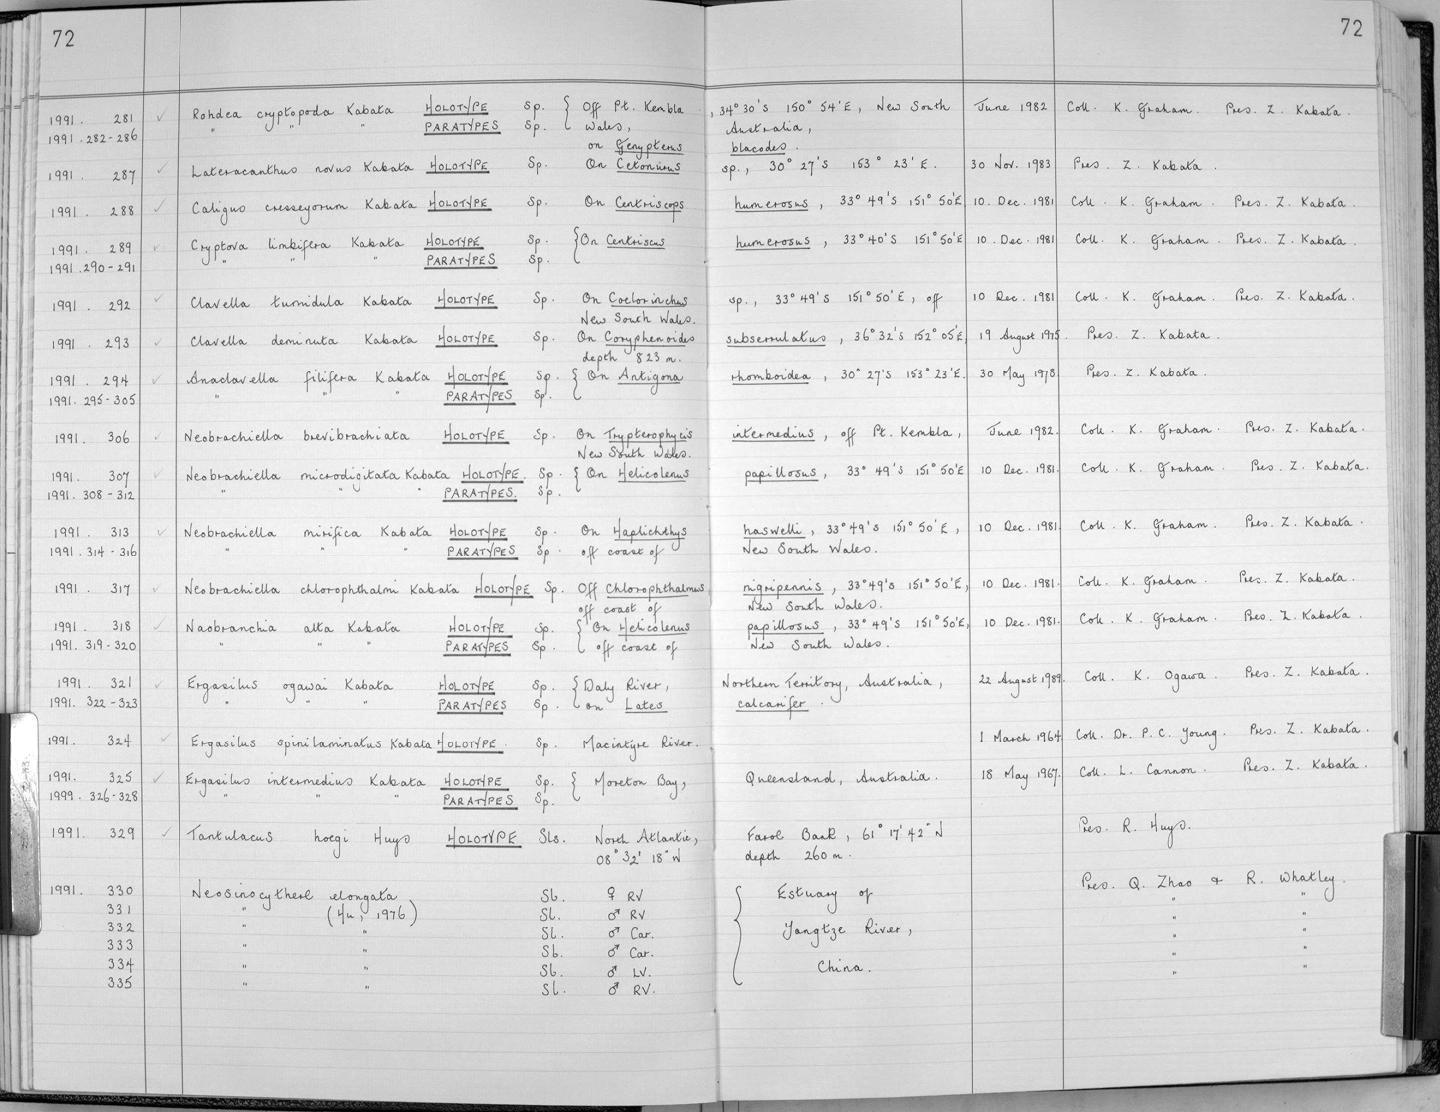 72 72
1991. 281 Rohdea cryptopoda Kabata HOLOTYPE Sp. { Off Pt. Kembla, 34° 30'S 150° 54'E, New South June 1982 Coll. K. Graham. Pres. Z. Kabata.
1991. 282-286 " " " PARATYPES Sp. Wales, Australia,
on Genypterus blacodes.
1991. 287 Lateracanthus novus Kabata HOLOTYPE Sp. On Cetonurus sp., 30° 27'S 153° 23'E. 30 Nov. 1983 Pres. Z. Kabata.
1991. 288 Caligus cresseyorum Kabata HOLOTYPE Sp. On Centriscops humerosus, 33° 49'S 151° 50'E 10. Dec. 1981 Coll. K. Graham. Pres. Z. Kabata.
1991. 289 Cryptova limbifera Kabata HOLOTYPE Sp. { On Centriscus humerosus, 33° 40'S 151° 50'E 10. Dec. 1981 Coll. K. Graham. Pres. Z. Kabata.
1991. 290-291 " " " PARATYPES Sp.
1991. 292 Clavella tumidula Kabata HOLOTYPE Sp. On Coelorinchus sp., 33° 49'S 151° 50'E, off 10 Dec. 1981 Coll. K. Graham. Pres. Z. Kabata.
New South Wales.
1991. 293 Clavella deminuta Kabata HOLOTYPE Sp. On Coryphenoides subserrulatus, 36° 32'S 152° 05'E, 19 August 1975. Pres. Z. Kabata.
depth 823 m.
1991. 294 Anaclavella filifera Kabata HOLOTYPE Sp. { On Antigona rhomboidea, 30° 27'S 153° 23'E. 30 May 1978 Pres. Z. Kabata.
1991. 295-305 " " " PARATYPES Sp.
1991. 306 Neobrachiella brevibrachiata HOLOTYPE Sp. On Trypterophycis intermedius, off Pt. Kembla, June 1982. Coll. K. Graham. Pres. Z. Kabata.
New South Wales.
1991. 307 Neobrachiella microdigitata Kabata HOLOTYPE. Sp. { On Helicolenus papillosus, 33° 49'S 151° 50'E 10 Dec. 1981. Coll. K. Graham. Pres. Z. Kabata.
1991. 308-312 " " " PARATYPES. Sp.
1991. 313 Neobrachiella mirifica Kabata HOLOTYPE Sp. On Haplichthys haswelli, 33° 49'S 151° 50'E, 10 Dec. 1981. Coll. K. Graham. Pres. Z. Kabata.
1991. 314-316 " " " PARATYPES Sp. off coast of New South Wales.
1991. 317 Neobrachiella chlorophthalmi Kabata HOLOTYPE Sp. Off Chlorophthalmus nigripennis, 33° 49'S 151° 50'E, 10 Dec. 1981. Coll. K. Graham. Pres. Z. Kabata.
off coast of New South Wales.
1991. 318 Naobranchia alta Kabata HOLOTYPE Sp. { On Helicolenus papillosus, 33° 49'S 151° 50'E, 10 Dec. 1981. Coll. K. Graham. Pres. Z. Kabata.
1991. 319-320 " " " PARATYPES Sp. off coast of New South Wales.
1991. 321 Ergasilus ogawai Kabata HOLOTYPE Sp. { Daly River, Northern Territory, Australia, 22 August 1989. Coll. K. Ogawa. Pres. Z. Kabata.
1991. 322-323 " " " PARATYPES Sp. on Lates calcarifer.
1991. 324 Ergasilus spinilaminatus Kabata HOLOTYPE. Sp. Macintyre River. 1 March 1964 Coll. Dr. P. C. Young. Pres. Z. Kabata.
1991. 325 Ergasilus intermedius Kabata HOLOTYPE Sp. { Moreton Bay, Queensland, Australia. 18 May 1967. Coll. L. Cannon. Pres. Z. Kabata.
1999. 326-328 " " " PARATYPES Sp.
1991. 329 Tantulacus hoegi Huys HOLOTYPE Sls. North Atlantic, Faroe Bank, 61° 17' 42" N Pres. R. Huys.
08° 32' 18" W depth 260 m.
1991. 330 Neosinocythere elongata Sl. ♀ RV { Estuary of Pres. Q. Zhao & R. Whatley.
331 " (Hu, 1976) Sl. ♂ RV " "
332 " " Sl. ♂ Car. Yangtze River, " "
333 " " Sl. ♂ Car. " "
334 " " Sl. ♂ LV. China. " "
335 " " Sl. ♂ RV.